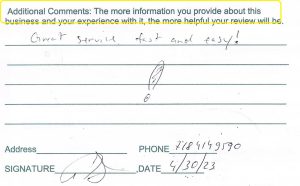 Additional Comments: The more information you provide about this
business and your experience with it, the more helpful your review will be.
Great service, fast and easy!
Address
PHONE 7184149590
SIGNATURE DATE 4/30/23